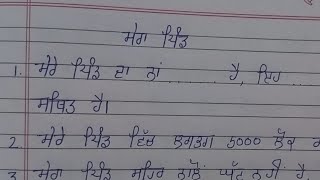 ਮੇਰਾ ਪਿੰਡ
1. ਮੇਰੇ ਪਿੰਡ ਦਾ ਨਾਂ ......... ਹੈ, ਇਹ ...
ਸਥਿਤ ਹੈ।
2. ਮੇਰੇ ਪਿੰਡ ਵਿੱਚ ਲਗਭਗ 5000 ਲੋਕ
3. ਮੇਰਾ ਪਿੰਡ ਸ਼ਹਿਰ ਨਾਲੋਂ ਘੱਟ ਨਹੀਂ ਹੈ.